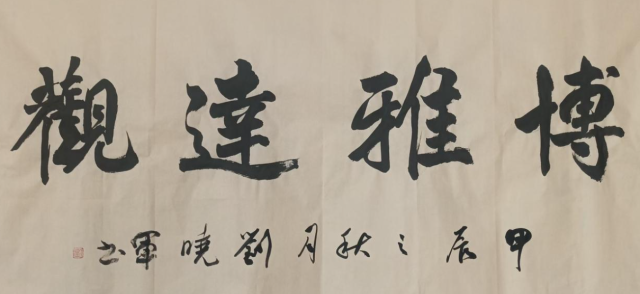 博雅達觀
甲辰之秋月劉曉軍书